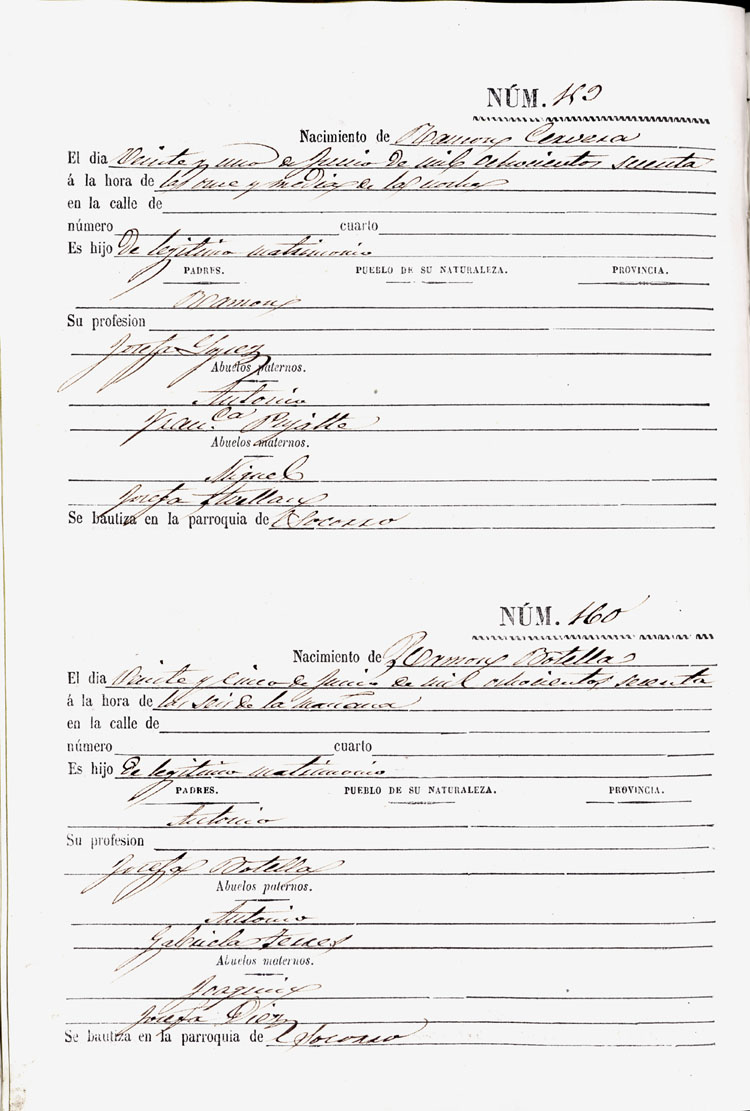 NÚM. 159
Nacimiento de Ramon Cervera
El dia Veinte y uno de Junio de mil ochocientos sesenta
á la hora de las once y media de la noche
en la calle de
número cuarto
Es hijo De legitimo matrimonio
PADRES. PUEBLO DE SU NATURALEZA. PROVINCIA.
Ramon
Su profesion
Josefa
Abuelos paternos.
Antonio
Fran.ca
Abuelos maternos.
Miguel
Josefa
Se bautiza en la parroquia de Socorro
NÚM. 160
Nacimiento de Ramon Botella
El dia Veinte y cinco de Junio de mil ochocientos sesenta
á la hora de las seis de la mañana
en la calle de
número cuarto
Es hijo De legitimo matrimonio
PADRES. PUEBLO DE SU NATURALEZA. PROVINCIA.
Antonio
Su profesion
Josefa Botella
Abuelos paternos.
Antonio
Gabriela
Abuelos maternos.
Joaquin
Josefa Diez
Se bautiza en la parroquia de Socorro